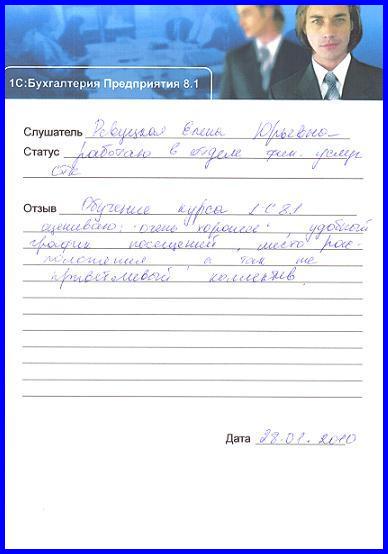 1С:Бухгалтерия Предприятия 8.1
Слушатель Ревуцкая Елена Юрьевна
Статус работаю в отделе фин. услуг
Отзыв Обучение курса 1С 8.1
оцениваю: "очень хорошее", удобный
график посещений, место рас-
положения, а так же
приветливый коллектив.
Дата 28.01.2010